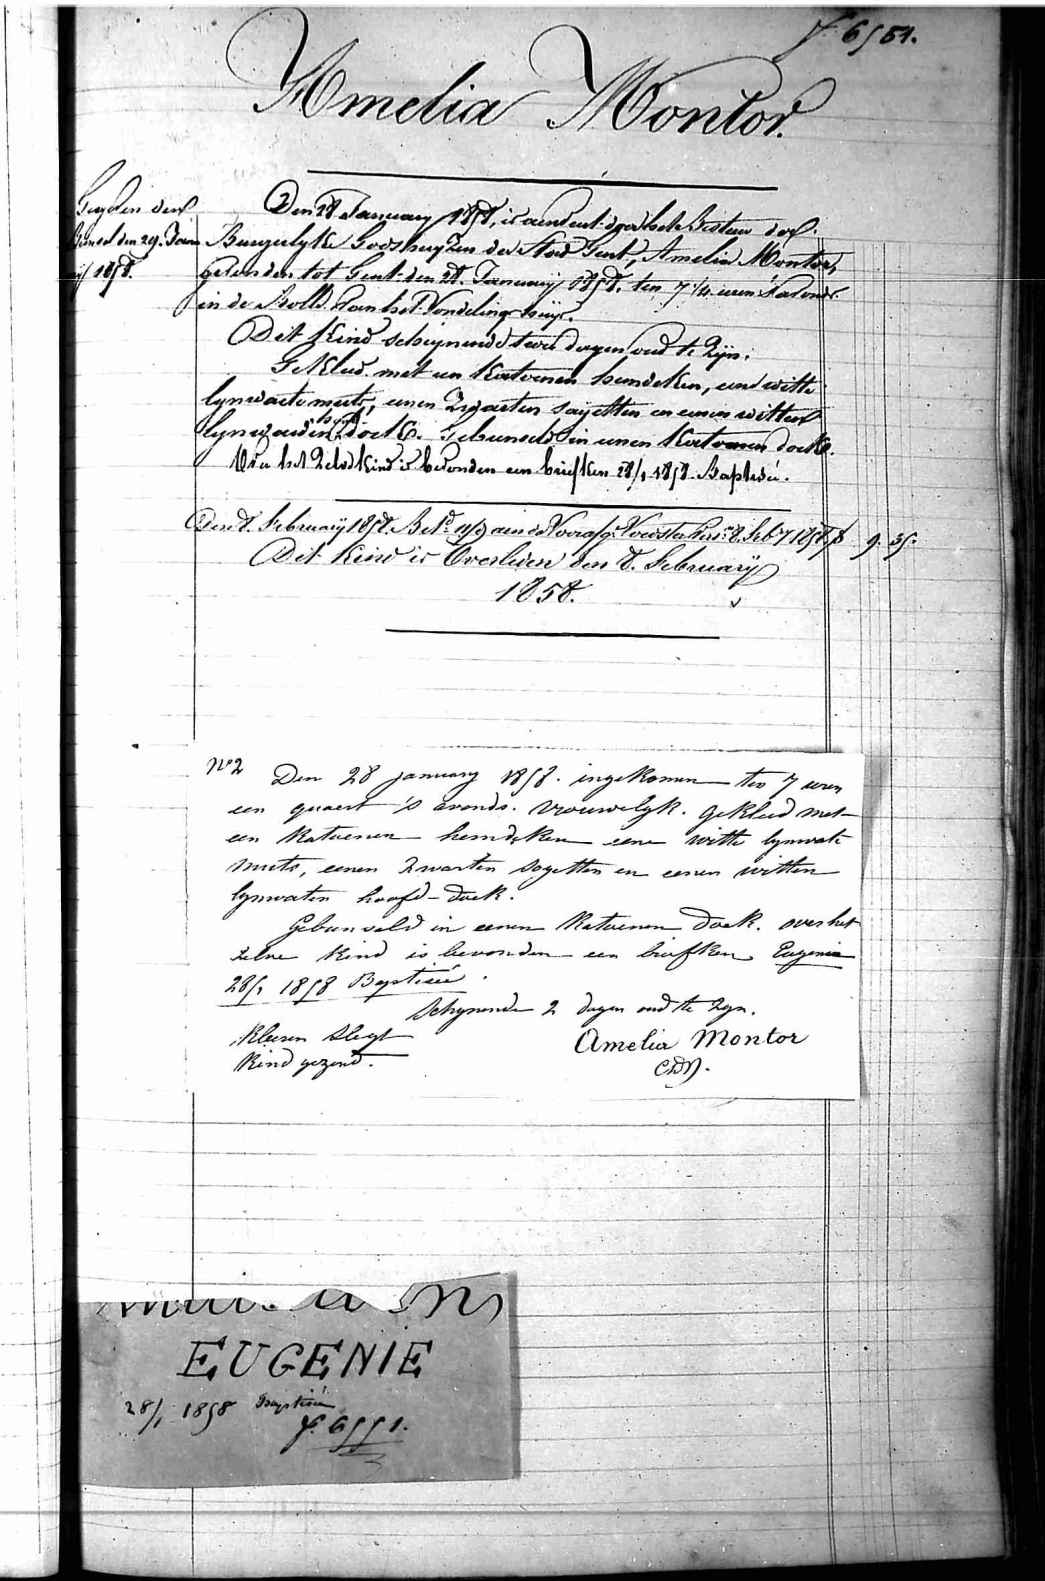 f. 6551.
Amelia Montor.
den 29. Janu
ÿ 1858.
Den 28 January 1858, is aen het Bestuer der
Burgerlyke Godshuyzen der Stad Gent, Amelia Montor,
gevonden tot Gent den 28. January 1858. ten 7 1/4 uren s'avonds
in de Rolle van het Vondelinghuys.
Dit Kind schynende twee dagen oud te Zijn.
Gekleed met een Katoenen hemdeken, eene witte
lynwaete muts, eenen Zwarten sayetten en eenen witten
lynwaeden hoofd Doek. Gebunseld in eenen Katoenen doek.
Over het Zelve Kind is bevonden een briefken 28/1 1858. Baptisée.
Den 8. February 1858. 8. Feb 1858 9. 35.
Dit Kind is Overleden den 8. February
1858.
N° 2 Den 28 january 1858. ingekomen ten 7 uren
een quaert 's avonds. vrouwelyk. gekleed met
een Katoenen hemdeken eene witte lynwate
muts, eenen Zwarten sayetten en eenen witten
lynwaten hoofd-doek.
Gebunseld in eenen Katoenen Doek. over het
zelve Kind is bevonden een briefken Eugenie
28/1 1858 Baptisée.
Schynende 2 dagen oud te Zyn.
Kleeren slegt
Kind gezond.
Amelia Montor
EUGENIE
28/1 1858 Baptisée
f. 6551.